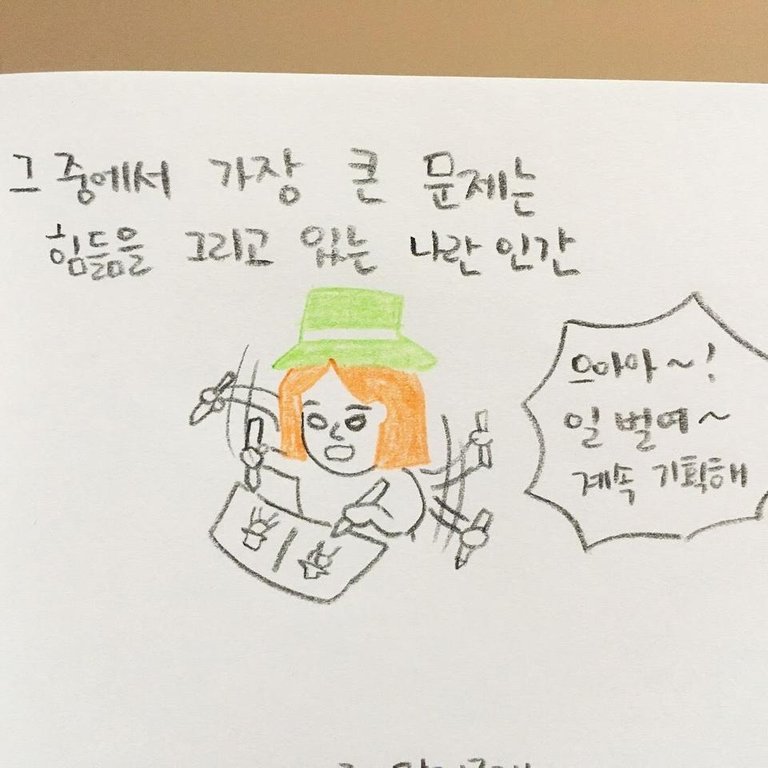 그 중에서 가장 큰 문제는
힘듦을 그리고 있는 나란 인간
으아아~!
일 벌여~
계속 기획해